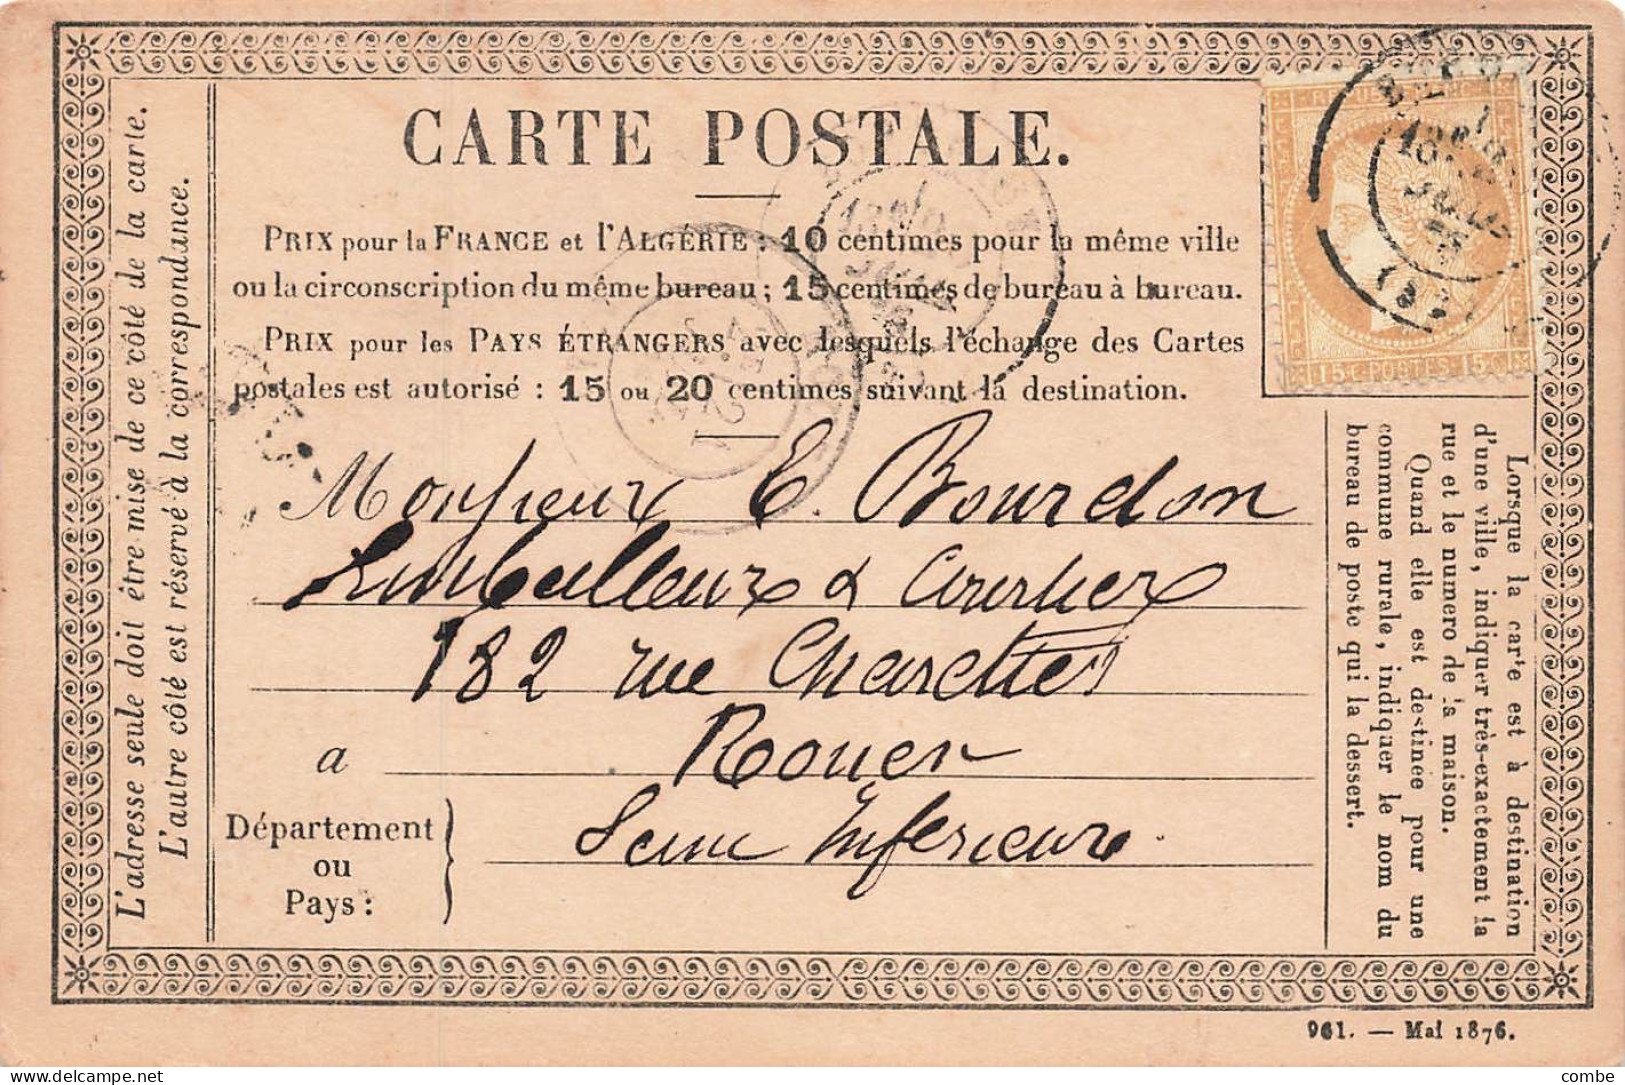 CARTE POSTALE.
PRIX pour la FRANCE et l'ALGÉRIE : 10 centimes pour la même ville
ou la circonscription du même bureau ; 15 centimes de bureau à bureau.
PRIX pour les PAYS ÉTRANGERS avec lesquels l'échange des Cartes
postales est autorisé : 15 ou 20 centimes suivant la destination.
L'adresse seule doit être mise de ce côté de la carte.
L'autre côté est réservé à la correspondance.
15 C POSTES 15 C
Monsieur E. Bourdon
Emballeur & Courtier
182 rue Charettes
a Rouen
Département
ou
Pays :
Seine Inferieure.
Lorsque la carte est à destination
d'une ville, indiquer très-exactement la
rue et le numero de la maison.
Quand elle est destinée pour une
commune rurale, indiquer le nom du
bureau de poste qui la dessert.
961. — Mai 1876.
delcampe.net
combe